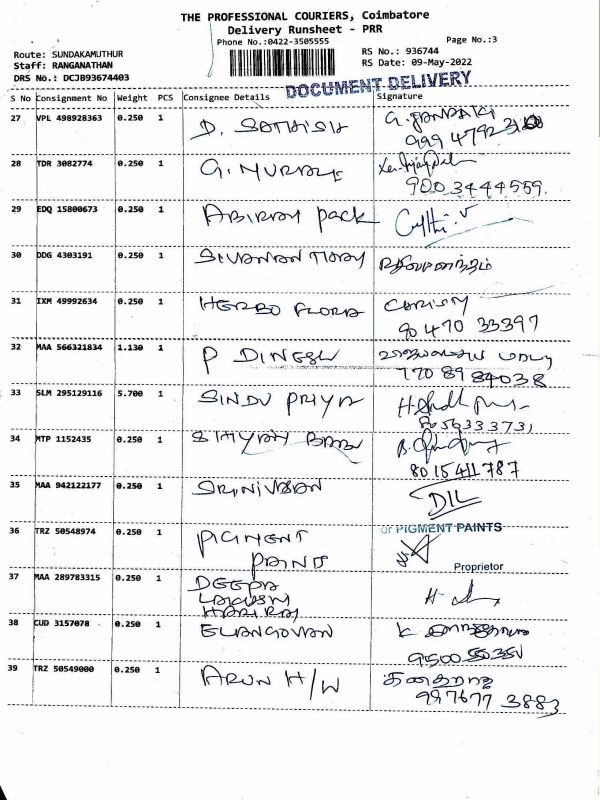 THE PROFESSIONAL COURIERS, Coimbatore
Delivery Runsheet - PRR
Phone No.:0422-3505555
Page No.:3
Route: SUNDAKAMUTHUR
Staff: RANGANATHAN
DRS No.: DCJB93674403
RS No.: 936744
RS Date: 09-May-2022
DOCUMENT DELIVERY
S No Consignment No Weight PCS Consignee Details Signature
27 VPL 498928363 0.250 1 D. SATHISH G. JANDAKI
28 TDR 3082774 0.250 1 G. MURALI
900 3444559.
29 EDQ 15800673 0.250 1 ABIRAY Pack
30 DDG 4303191 0.250 1 SIVANANTHAY
31 IXM 49992634 0.250 1 HERBO FLORA
90 470 33397
32 MAA 566321834 1.130 1 P DINESH
770 89 84038
33 SLM 295129116 5.700 1 SINDU PRIYA
34 MTP 1152435 0.250 1 SHYAM BABU
8015411787
35 MAA 942122177 0.250 1 SRINIVASAN DIL
36 TRZ 50548974 0.250 1 PIGMENT
PAINTS
or PIGMENT PAINTS
Proprietor
37 MAA 289783315 0.250 1 DEEPA
38 CUD 3157078 0.250 1 ELANGOVAN
39 TRZ 50549000 0.250 1 ARUN H/W
997677 3883